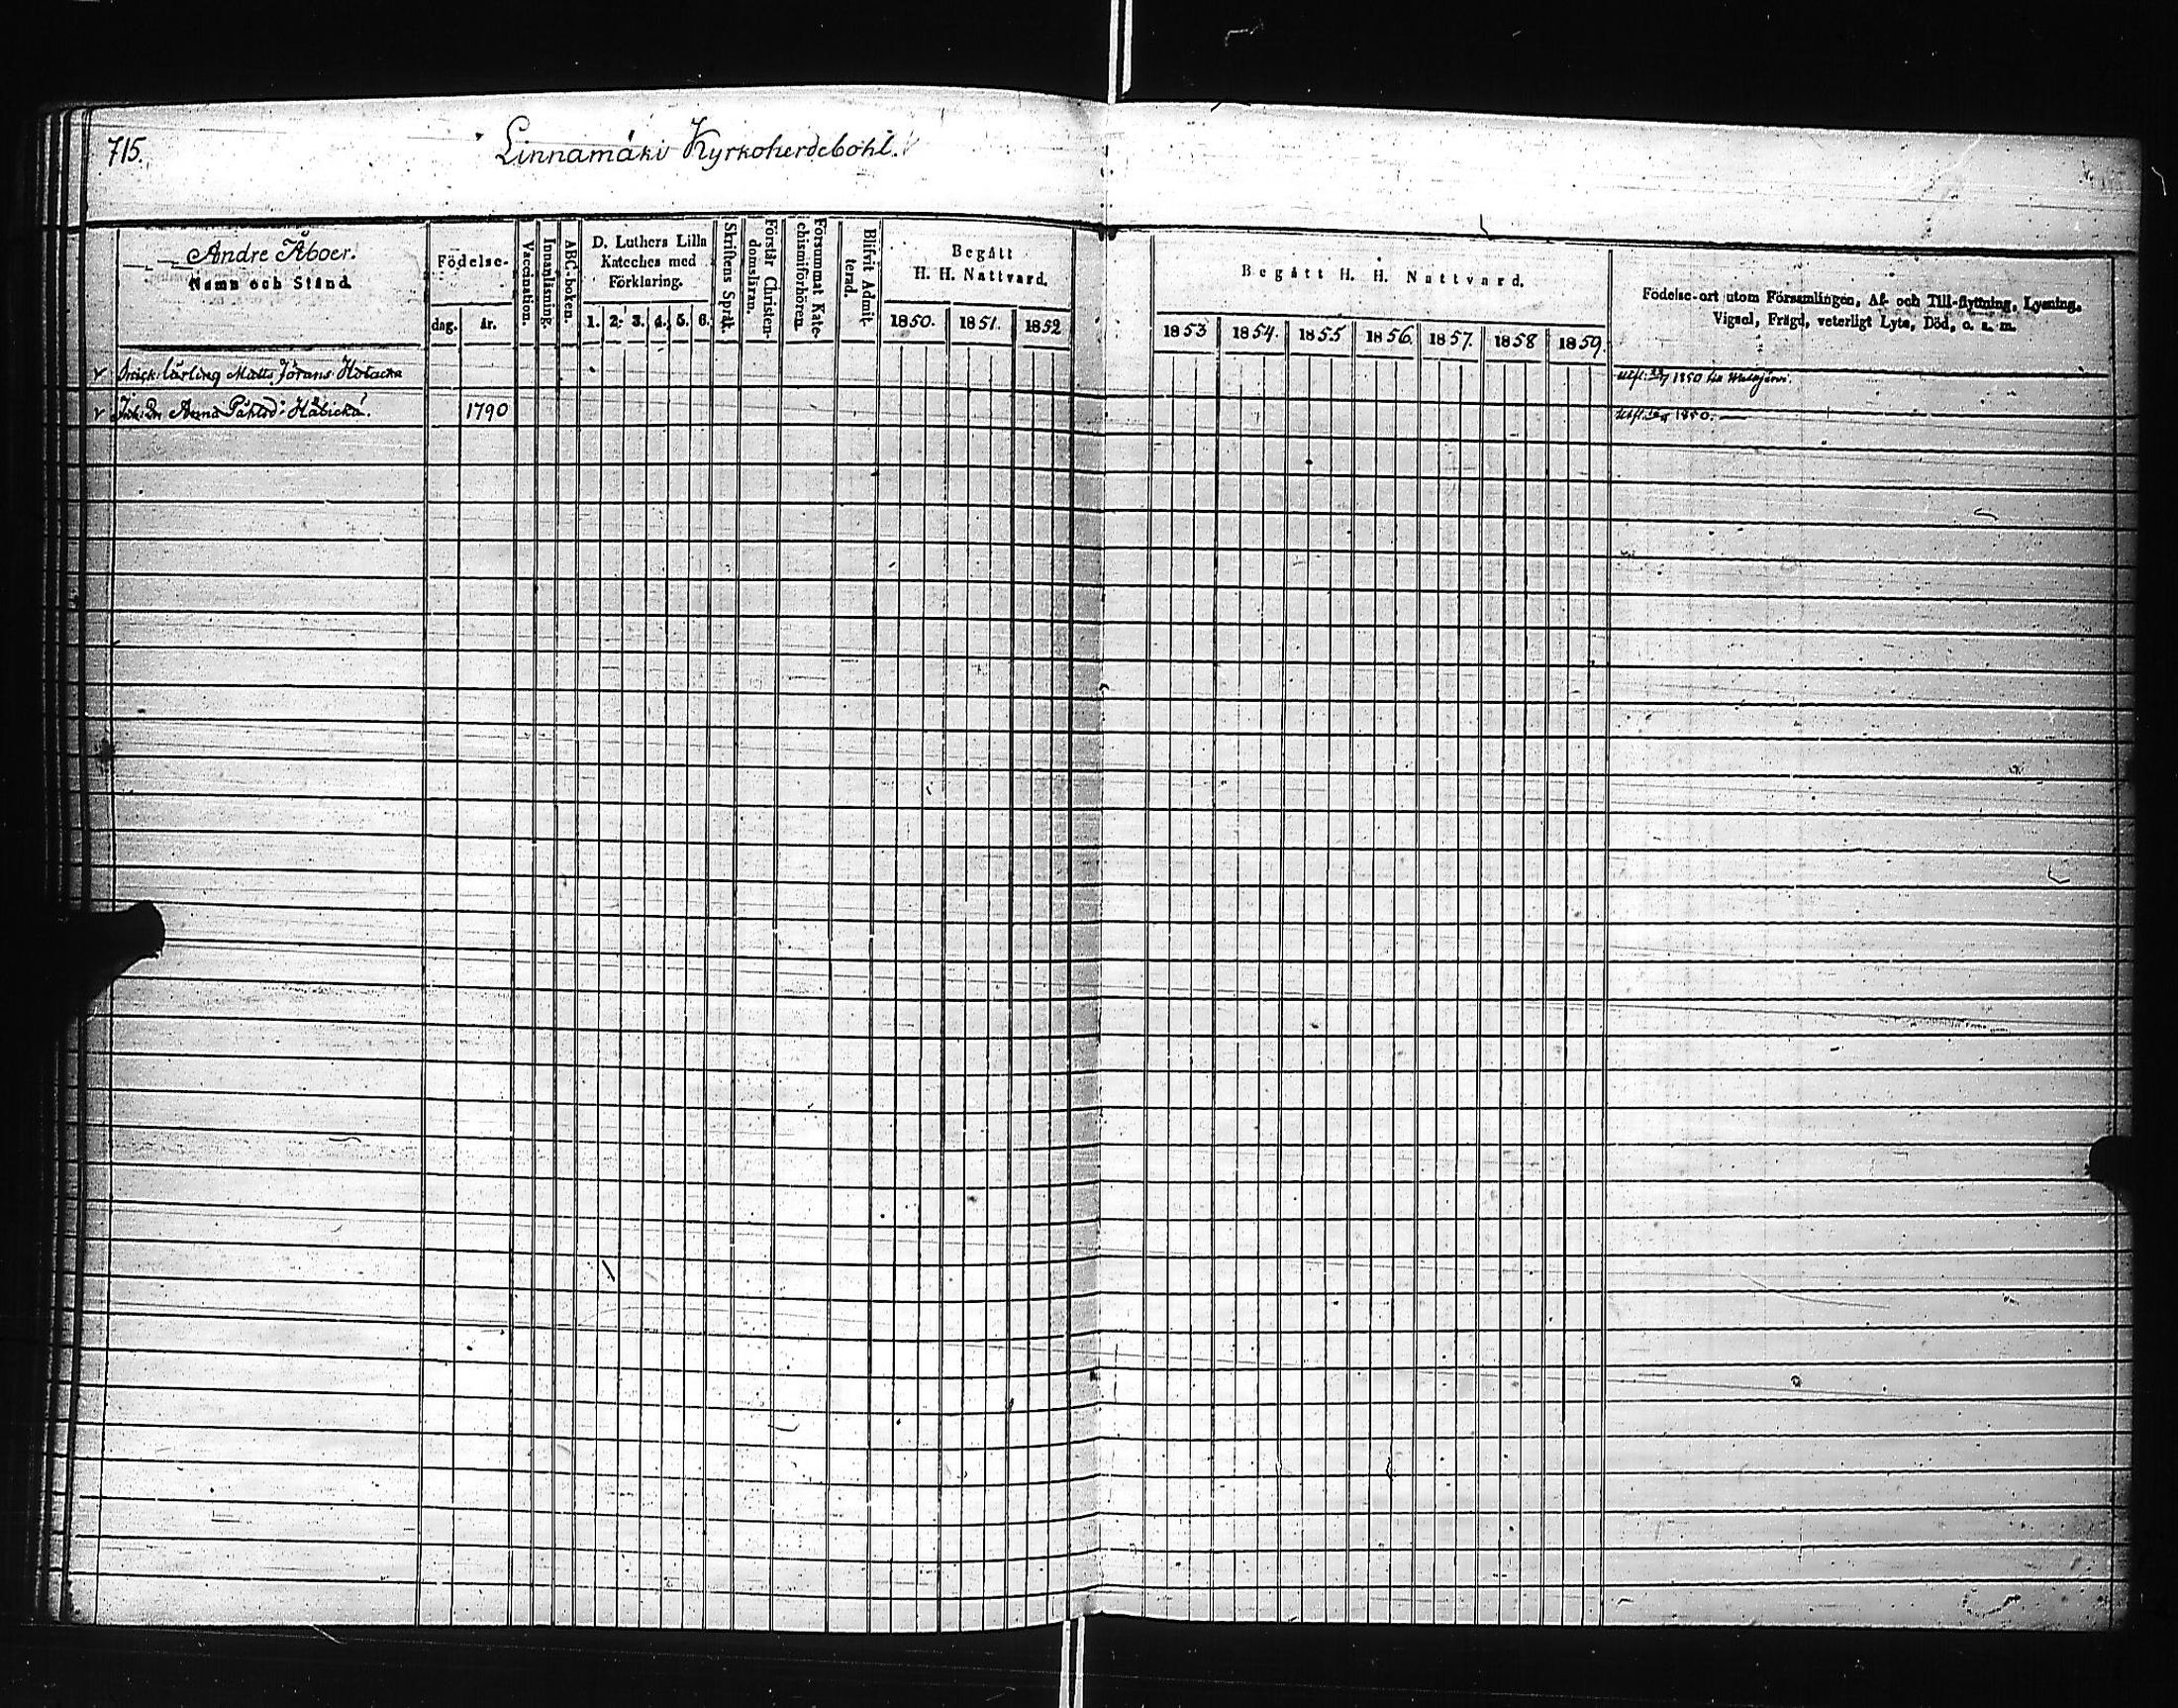 715.
Linnamäki Kyrkoherdebohl.
Andre Åboer.
Namn och Stånd.
Födelse-
dag. år.
Vaccination.
Innanläsning.
ABC-boken.
D. Luthers Lilla
Kateches med
Förklaring.
1. 2. 3. 4. 5. 6.
Skriftens Språk.
Förstår Christen-
domsläran.
Försummat Kate-
chismiförhören.
Blifvit Admit-
terad.
Begått
H. H. Nattvard.
1850. 1851. 1852
Begått H. H. Nattvard.
1853 1854. 1855 1856. 1857. 1858 1859.
Födelse-ort utom Församlingen, Af- och Till-flyttning, Lysning,
Vigsel, Frägd, veterligt Lyte, Död, o. s. m.
lärling Matts Jörans
1850 till
Anna 1790
1850.